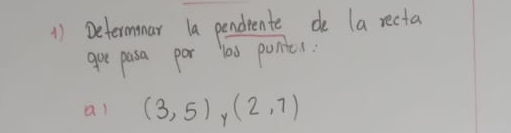 1) Determinar la pendiente de la recta
que pasa por los puntos:
a) (3,5) y (2,7)